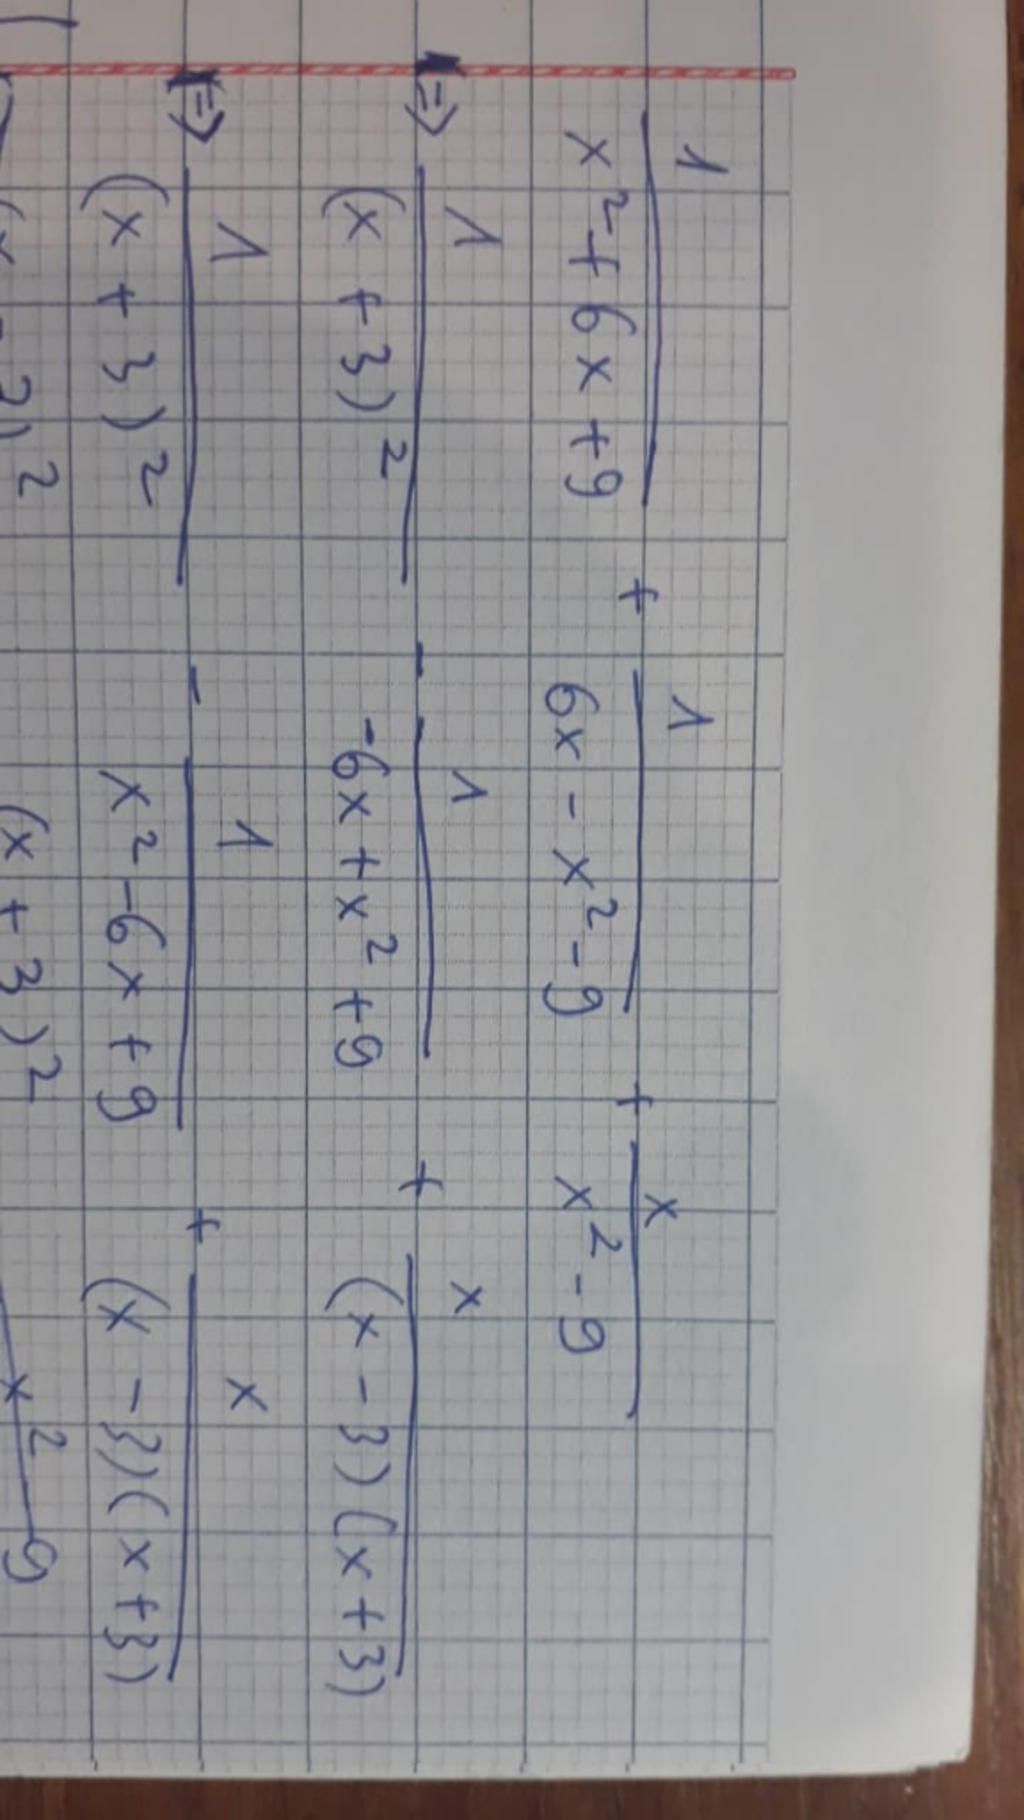 1/(x² + 6x + 9) + 1/(6x - x² - 9) + x/(x² - 9)
=> 1/(x + 3)² - 1/(-6x + x² + 9) + x/((x - 3)(x + 3))
=> 1/(x + 3)² - 1/(x² - 6x + 9) + x/((x - 3)(x + 3))
(x - 3)² (x + 3)² x² 9